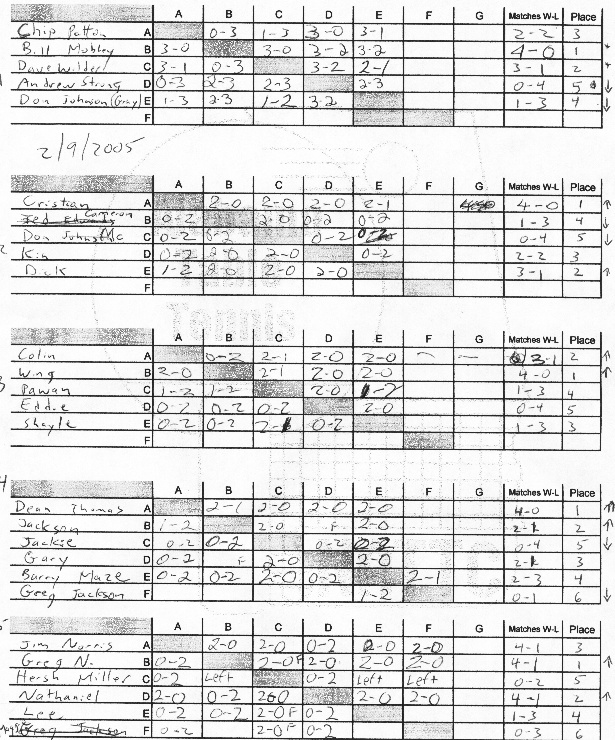 A B C D E F G Matches W-L Place
Chip Patton A 0-3 1-3 3-0 3-1 2-2 3
Bill Mobley B 3-0 3-0 3-2 3-2 4-0 1
Dave Wilder C 3-1 0-3 3-2 2-1 3-1 2
Andrew Strong D 0-3 2-3 2-3 2-3 0-4 5 ↓
Don Johnson (Gray) E 1-3 2-3 1-2 3-2 1-3 4 ↓
F
2/9/2005
A B C D E F G Matches W-L Place
Cristian A 2-0 2-0 2-0 2-1 4-0 1 ↑
Cameron B 0-2 2-0 0-2 0-2 1-3 4 ↓
2 Don Johns Mc C 0-2 0-2 0-2 0-2 0-4 5 ↓
Kin D 0-2 2-0 2-0 0-2 2-2 3
Dick E 1-2 2-0 2-0 2-0 3-1 2 ↑
F
A B C D E F G Matches W-L Place
Colin A 0-2 2-1 2-0 2-0 - - 3-1 2 ↑
Wing B 2-0 2-1 2-0 2-0 4-0 1 ↑
3 Pawan C 1-2 1-2 2-0 1-2 1-3 4
Eddie D 0-2 0-2 0-2 2-0 0-4 5
Shayle E 0-2 0-2 2-1 0-2 1-3 3
F
4 A B C D E F G Matches W-L Place
Dean Thomas A 2-1 2-0 2-0 2-0 4-0 1 ↑
Jackson B 1-2 2-0 F 2-0 2-1 2 ↑
Jackie C 0-2 0-2 0-2 0-2 0-4 5 ↓
Gary D 0-2 F 2-0 2-0 2-1 3
Barry Maze E 0-2 0-2 2-0 0-2 2-1 2-3 4
Greg Jackson F 1-2 0-1 6 ↓
5 A B C D E F G Matches W-L Place
Jim Norris A 2-0 2-0 0-2 2-0 2-0 4-1 3
Greg N. B 0-2 2-0F 2-0 2-0 2-0 4-1 1 ↑
Hersh Miller C 0-2 Left 0-2 Left Left 0-2 5
Nathaniel D 2-0 0-2 2-0 2-0 2-0 4-1 2 ↑
Lee E 0-2 0-2 2-0F 0-2 1-3 4
Greg Jackson F 0-2 2-0F 0-2 0-3 6